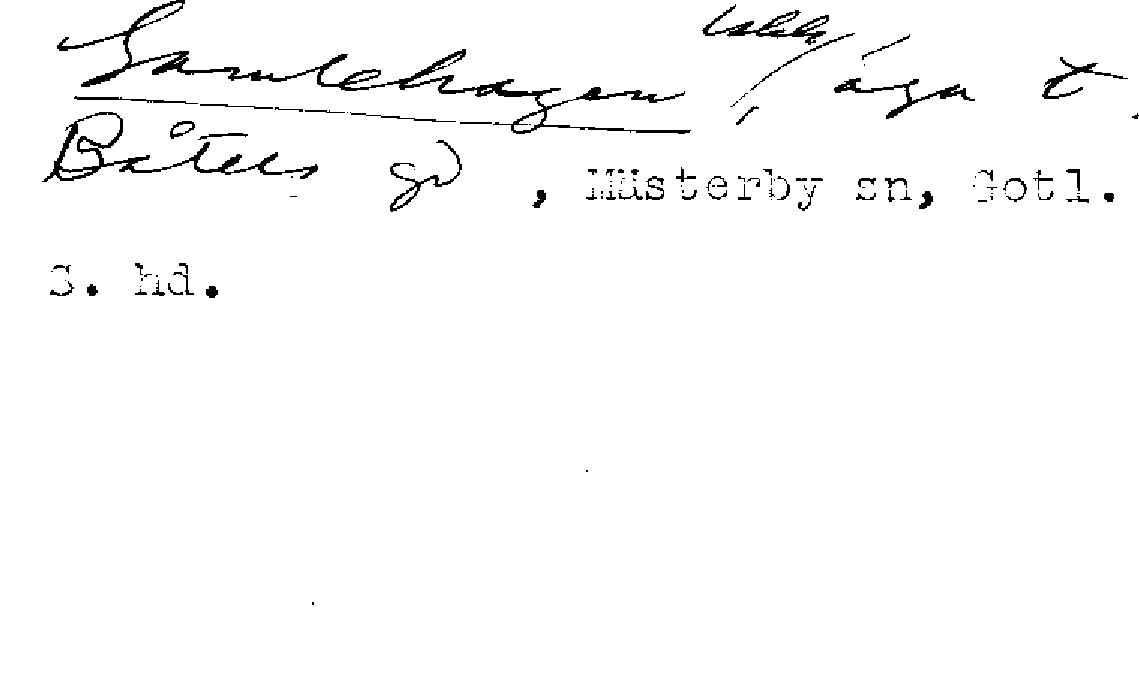 Gamlehagen, äga t.
Båtels gd, Mästerby sn, Gotl.
S. hd.